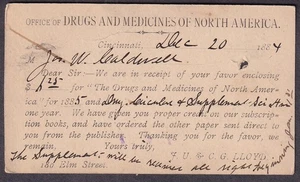 OFFICE OF DRUGS AND MEDICINES OF NORTH AMERICA.
Cincinnati, Dec 20 1884
M Jos. W. Caldwell
Dear Sir:—We are in receipt of your favor enclosing
$ .25 for "The Drugs and Medicines of North
America" for 1885 and
one year. We have given you proper credit on our subscription
books, and have ordered the other paper sent direct to
you from the publisher. Thanking you for the favor, we
remain. Yours truly,
J. U. & C. G. LLOYD,
180 Elm Street.
The Supplement will be all right